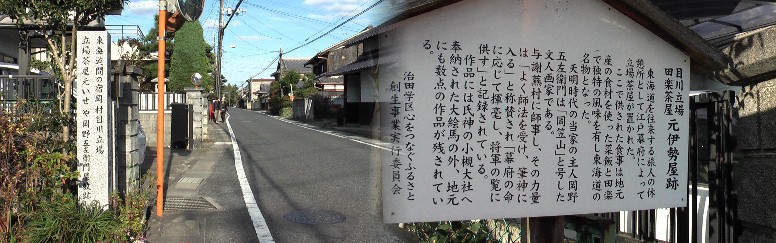 東海道間の宿岡村目川立場
立場茶屋いせや岡野五左衛門
目川立場
田楽茶屋元伊勢屋跡
東海道を往来する旅人の休
憩所として江戸幕府によって
立場茶屋が置かれた。
ここで供された食事は地元
産の食材を使った菜飯と田楽
で独特の風味を有し東海道の
名物となった。
天明時の当家の主人岡野
五左衛門は「岡笠山」と号した
文人画家である。
与謝蕪村に師事し、その力量
は「よく師法を受け、筆神に
入る」と称賛され「幕府の命
に応じて揮毫し、将軍の覧に
供す」と記録されている。
作品には氏神の小槻大社へ
奉納された大絵馬の外、地元
にも数点の作品が残されてい
る。
治田学区心をつなぐふるさと
創生事業実行委員会